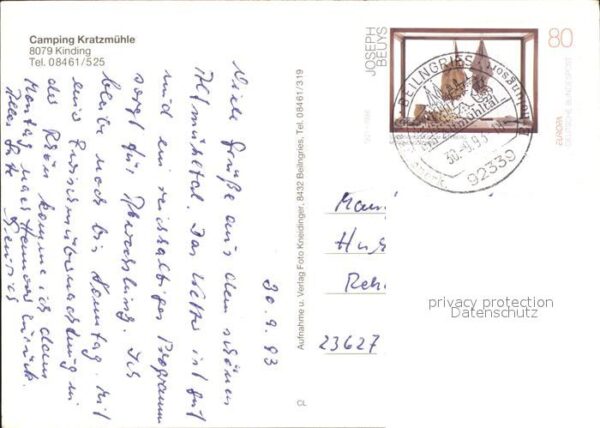 Camping Kratzmühle
8079 Kinding
Tel. 08461/525
30.9.93
Viele Grüße aus dem schönen
Altmühltal. Das Wetter ist gut
und ein reichhaltiges Programm
sorgt für Abwechslung. Ich
bleibe noch bis Sonntag. Mit
eine Zwischenübernachtung in
der Rhön komme ich dann
Montag nach Hannover zurück.
Alles Gute
Aufnahme u. Verlag Foto Kneidinger, 8432 Beilngries, Tel. 08461/319
CL
JOSEPH
BEUYS
1921-1986
80
EUROPA
DEUTSCHE BUNDESPOST
BEILNGRIES
30.-9.93
92339
Hu
Reh
23627
privacy protection
Datenschutz